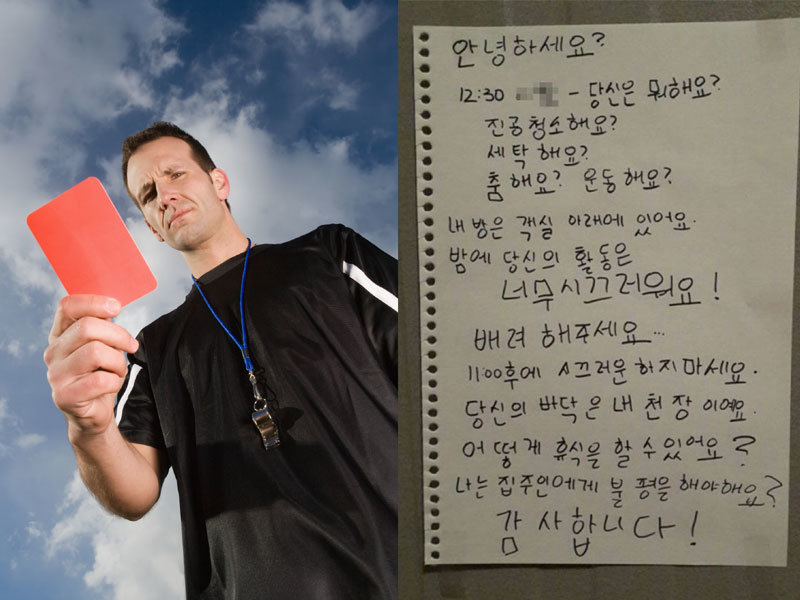 안녕하세요?
12:30 - 당신은 뭐해요?
진공청소해요?
세탁해요?
춤해요? 운동해요?
내 방은 객실 아래에 있어요.
밤에 당신의 활동은
너무시끄러워요!
배려 해주세요...
11:00후에 시끄러운 하지마세요.
당신의 바닥은 내 천장이예요.
어떻게 휴식을 할 수 있어요?
나는 집주인에게 불평을 해야해요?
감사합니다!